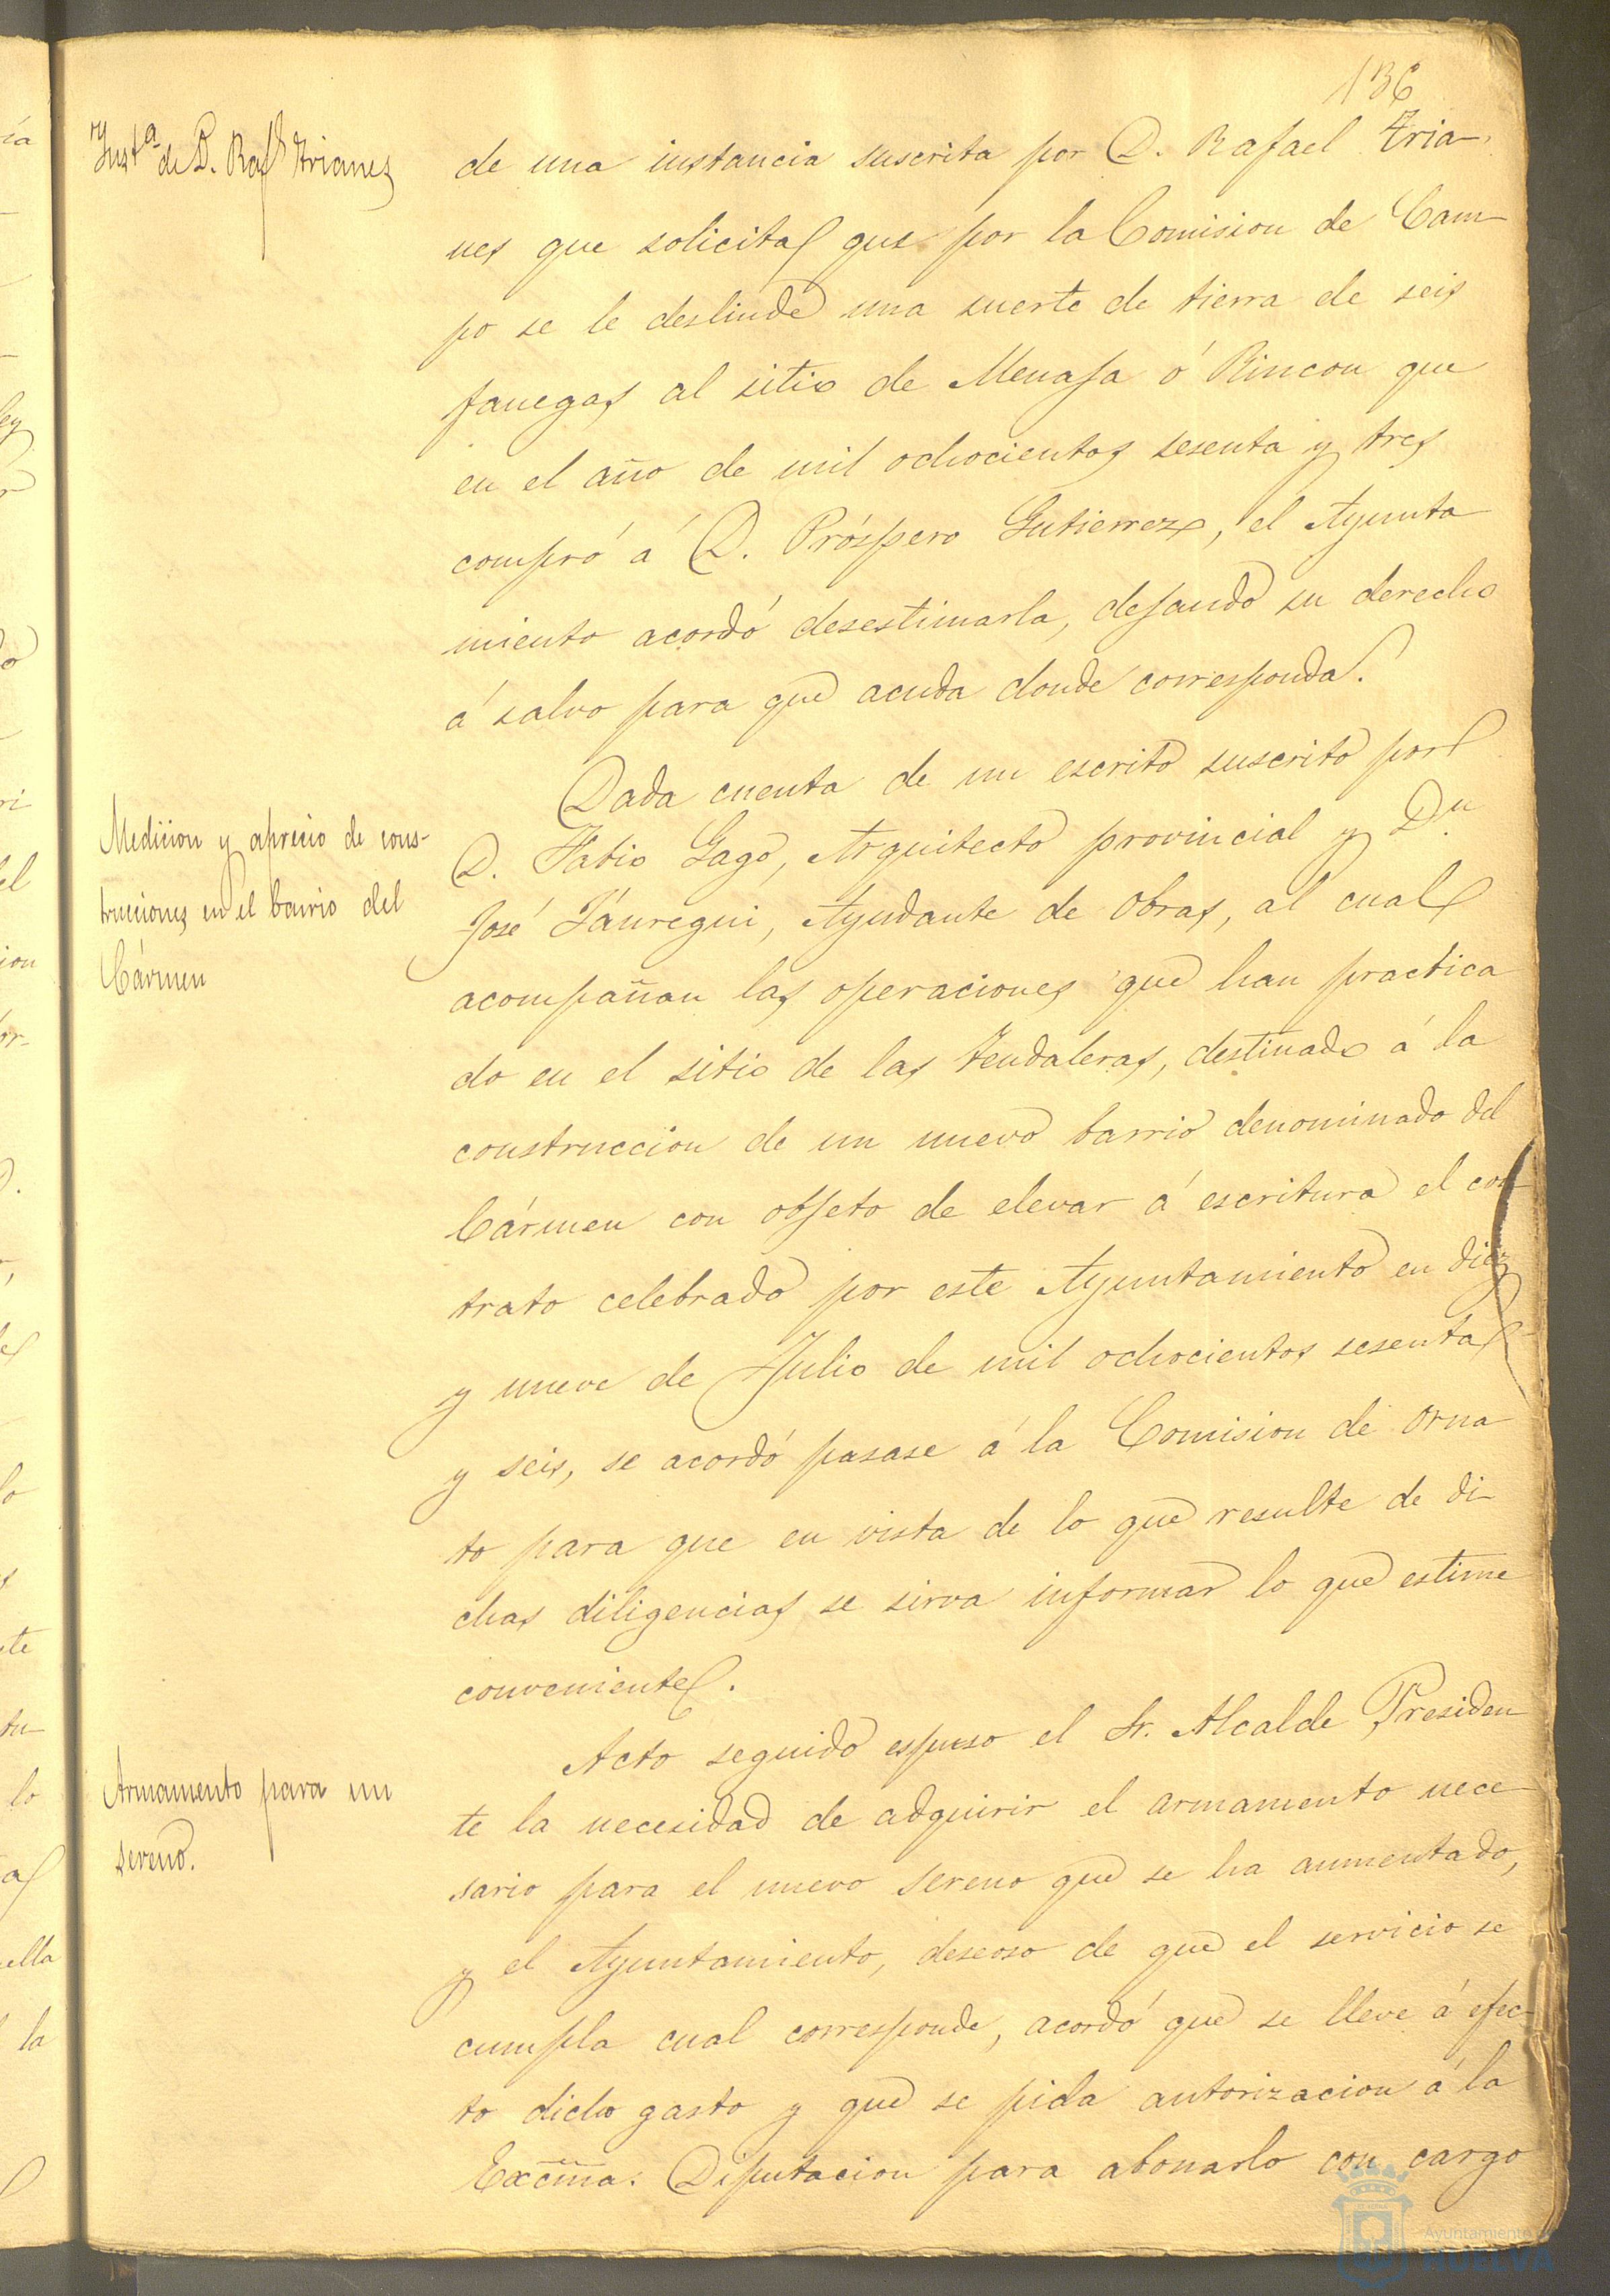 136
Inst.ª de D. Raf.l Trianes
de una instancia suscrita por D. Rafael Tria-
nes que solicita que por la Comision de Cam-
po se le deslinde una suerte de tierra de seis
fanegas al sitio de Menaja ó Rincon que
en el año de mil ochocientos sesenta y tres
compró á D. Próspero Gutierrez, el Ayunta
miento acordó desestimarla, dejando su derecho
á salvo para que acuda donde corresponda.
Medicion y aprecio de cons-
trucciones en el barrio del
Cármen
Dada cuenta de un escrito suscrito por
D. Fabio Gago, Arquitecto provincial y Dn
José Jáuregui, Ayudante de Obras, al cual
acompañan las operaciones que han practica
do en el sitio de las Tendaleras, destinado á la
construccion de un nuevo barrio denominado del
Cármen con objeto de elevar á escritura el con-
trato celebrado por este Ayuntamiento en diez
y nueve de Julio de mil ochocientos sesenta
y seis, se acordó pasase á la Comision de Orna
to para que en vista de lo que resulte de di-
chas diligencias se sirva informar lo que estime
conveniente.
Armamento para un
sereno.
Acto seguido espuso el Sr. Alcalde Presiden
te la necesidad de adquirir el armamento nece-
sario para el nuevo sereno que se ha aumentado,
y el Ayuntamiento, deseoso de que el servicio se
cumpla cual corresponde, acordó que se lleve á efec-
to dicho gasto y que se pida autorizacion á la
Excma. Diputacion para abonarlo con cargo
Ayuntamiento de
HUELVA